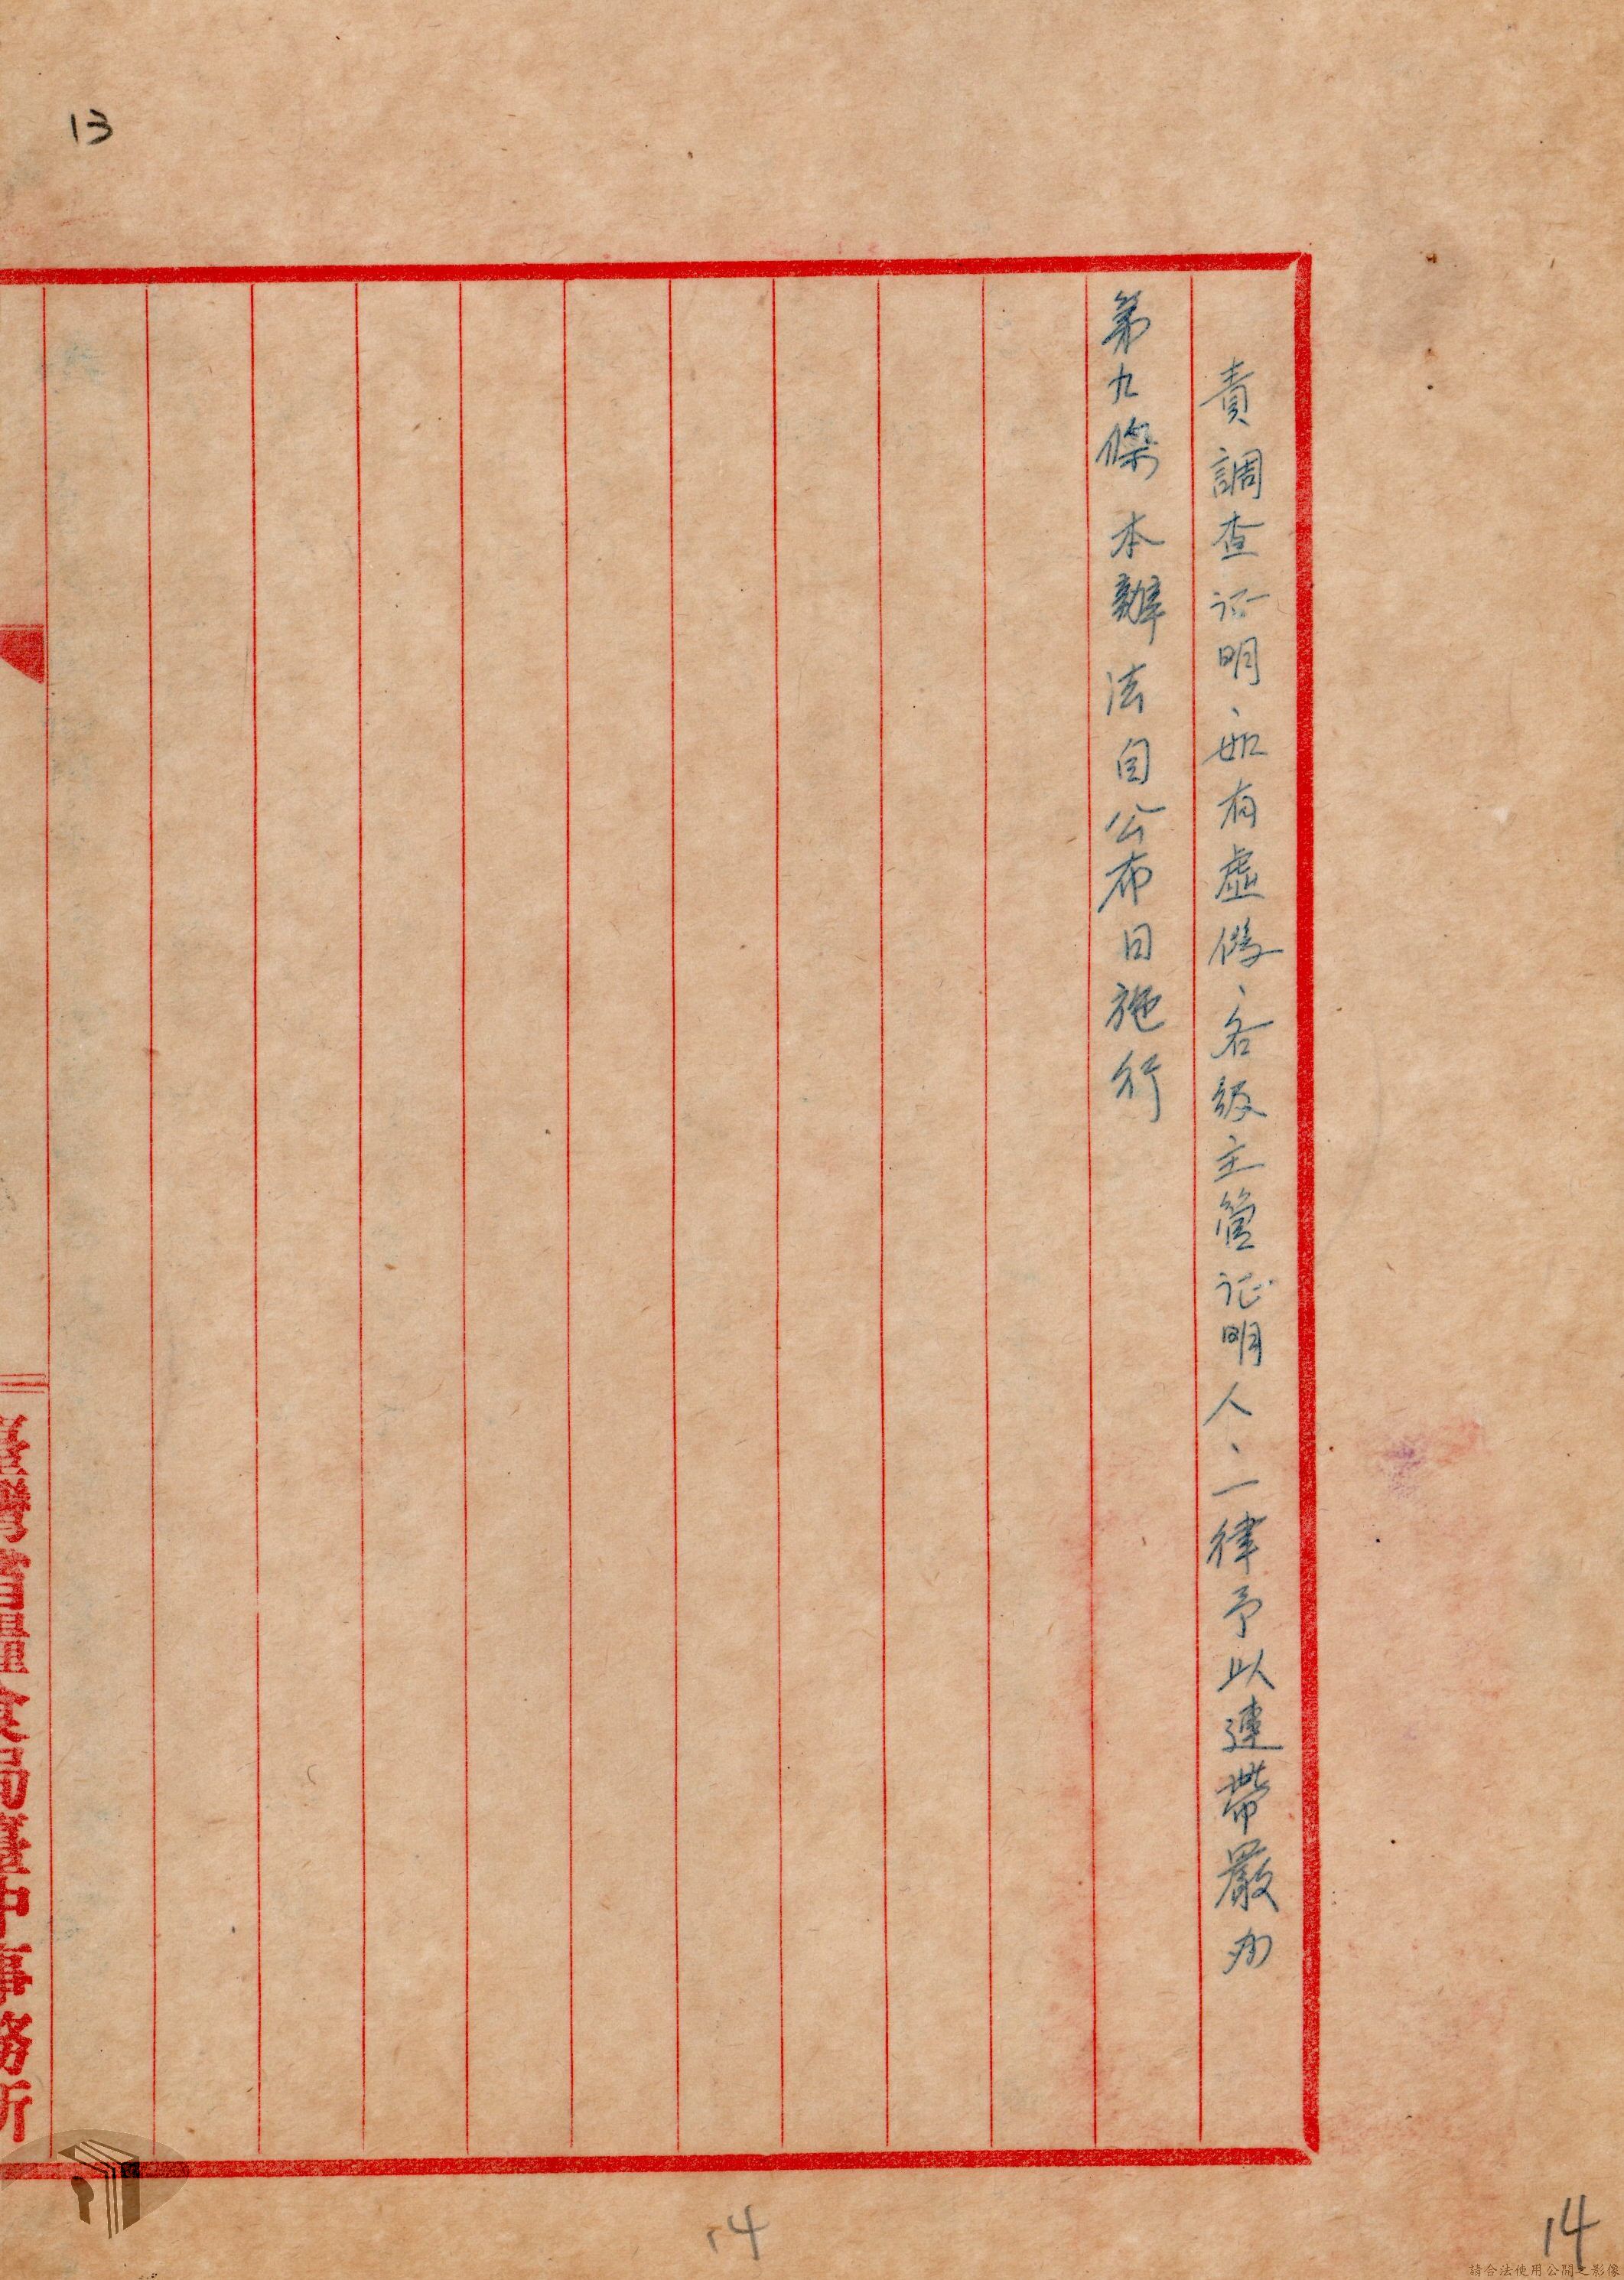 13
責調查证明、如有虛假、各級主管证明人、一律予以連帶嚴办
第九條 本辦法自公布日施行
臺灣省糧食局臺中事務所
14
14
請合法使用公開之影像